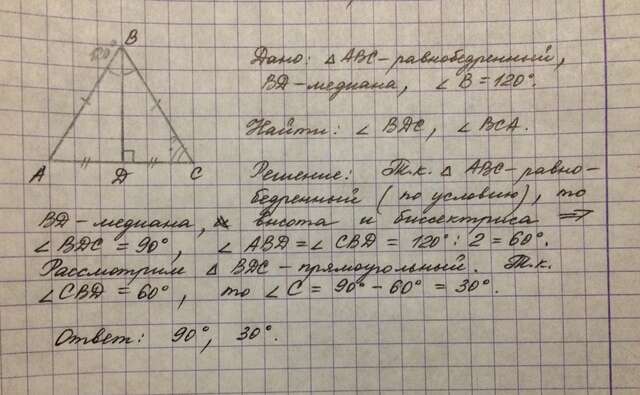 B
120°
A
D
C
Дано: Δ ABC - равнобедренный,
BD - медиана, ∠ B = 120°.
Найти: ∠ BDC, ∠ BCA.
Решение: Т.к. Δ ABC - равно-
бедренный (по условию), то
BD - медиана, высота и биссектриса ⇒
∠ BDC = 90°, ∠ ABD = ∠ CBD = 120° : 2 = 60°.
Рассмотрим Δ BDC - прямоугольный. Т.к.
∠ CBD = 60°, то ∠ C = 90° - 60° = 30°.
Ответ: 90°, 30°.